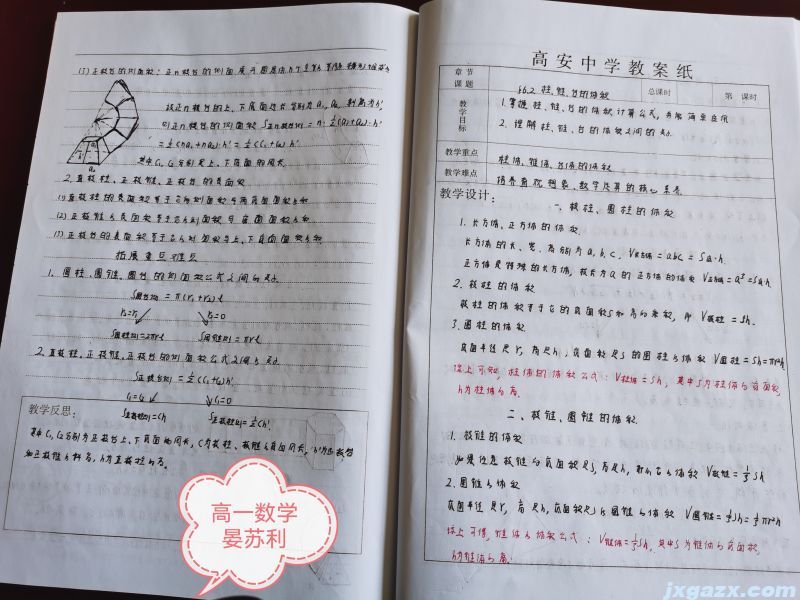 (3) 正棱台的侧面积：正n棱台的侧面展开图是由n个全等的等腰梯形
设正n棱台的上、下底面边长分别为a₁, a₂, 斜高为h'
则正n棱台的侧面积 S正n棱台侧 = n·½(a₁+a₂)·h'
= ½(na₁+na₂)h' = ½(C₁+C₂)·h'
其中C₁, C₂分别是上、下底面的周长
2. 直棱柱、正棱锥、正棱台的表面积
(1) 直棱柱的表面积等于它的侧面积与两底面面积的和
(2) 正棱锥的表面积等于它的侧面积与底面面积的和
(3) 正棱台的表面积等于它的侧面积与上、下底面面积的和
拓展重点难点
1. 圆柱、圆锥、圆台的侧面积公式之间的关系
S圆台侧 = π(r₁+r₂)l
r₁=r₂ r₁=0
S圆柱侧=2πrl S圆锥侧=πrl
2. 直棱柱、正棱锥、正棱台的侧面积公式之间的关系
S正棱台侧 = ½(C₁+C₂)h'
C₁=C₂ C₁=0
S直棱柱侧=Ch S正棱锥侧=½Ch'
教学反思：
其中C₁, C₂分别为正棱台上、下底面的周长, C为棱柱、棱锥的底面周长, h'为正棱台
和正棱锥的斜高, h为直棱柱的高。
高一数学
晏苏利
高安中学教案纸
章节
课题
§6.2 柱、锥、台的体积
总课时
第 课时
教学目标
1. 掌握柱、锥、台的体积计算公式, 并能简单应用
2. 理解柱、锥、台的体积之间的关系
教学重点
柱体、锥体、台体的体积
教学难点
培养直观想象、数学运算的核心素养
教学设计：
一、棱柱、圆柱的体积
1. 长方体、正方体的体积
长方体的长、宽、高分别为a, b, c, V长方体 = abc = S底·h
正方体是特殊的长方体, 棱长为a的正方体的体积 V正方体 = a³ = S底·h
2. 棱柱的体积
棱柱的体积等于它的底面积S和高h的乘积, 即 V棱柱 = Sh.
3. 圆柱的体积
底面半径是r, 高是h, 底面积是S的圆柱的体积 V圆柱 = Sh = πr²h
综上可知, 柱体的体积公式：V柱体 = Sh, 其中S为柱体的底面积,
h为柱体的高.
二、棱锥、圆锥的体积.
1. 棱锥的体积
如果任意棱锥的底面积是S, 高是h, 那么它的体积 V棱锥 = ⅓Sh
2. 圆锥的体积
底面半径是r, 高是h, 底面积是S的圆锥的体积 V圆锥 = ⅓Sh = ⅓πr²h
综上可得, 锥体的体积公式：V锥体 = ⅓Sh, 其中S为锥体的底面积,
h为锥体的高.
jxgazx.com